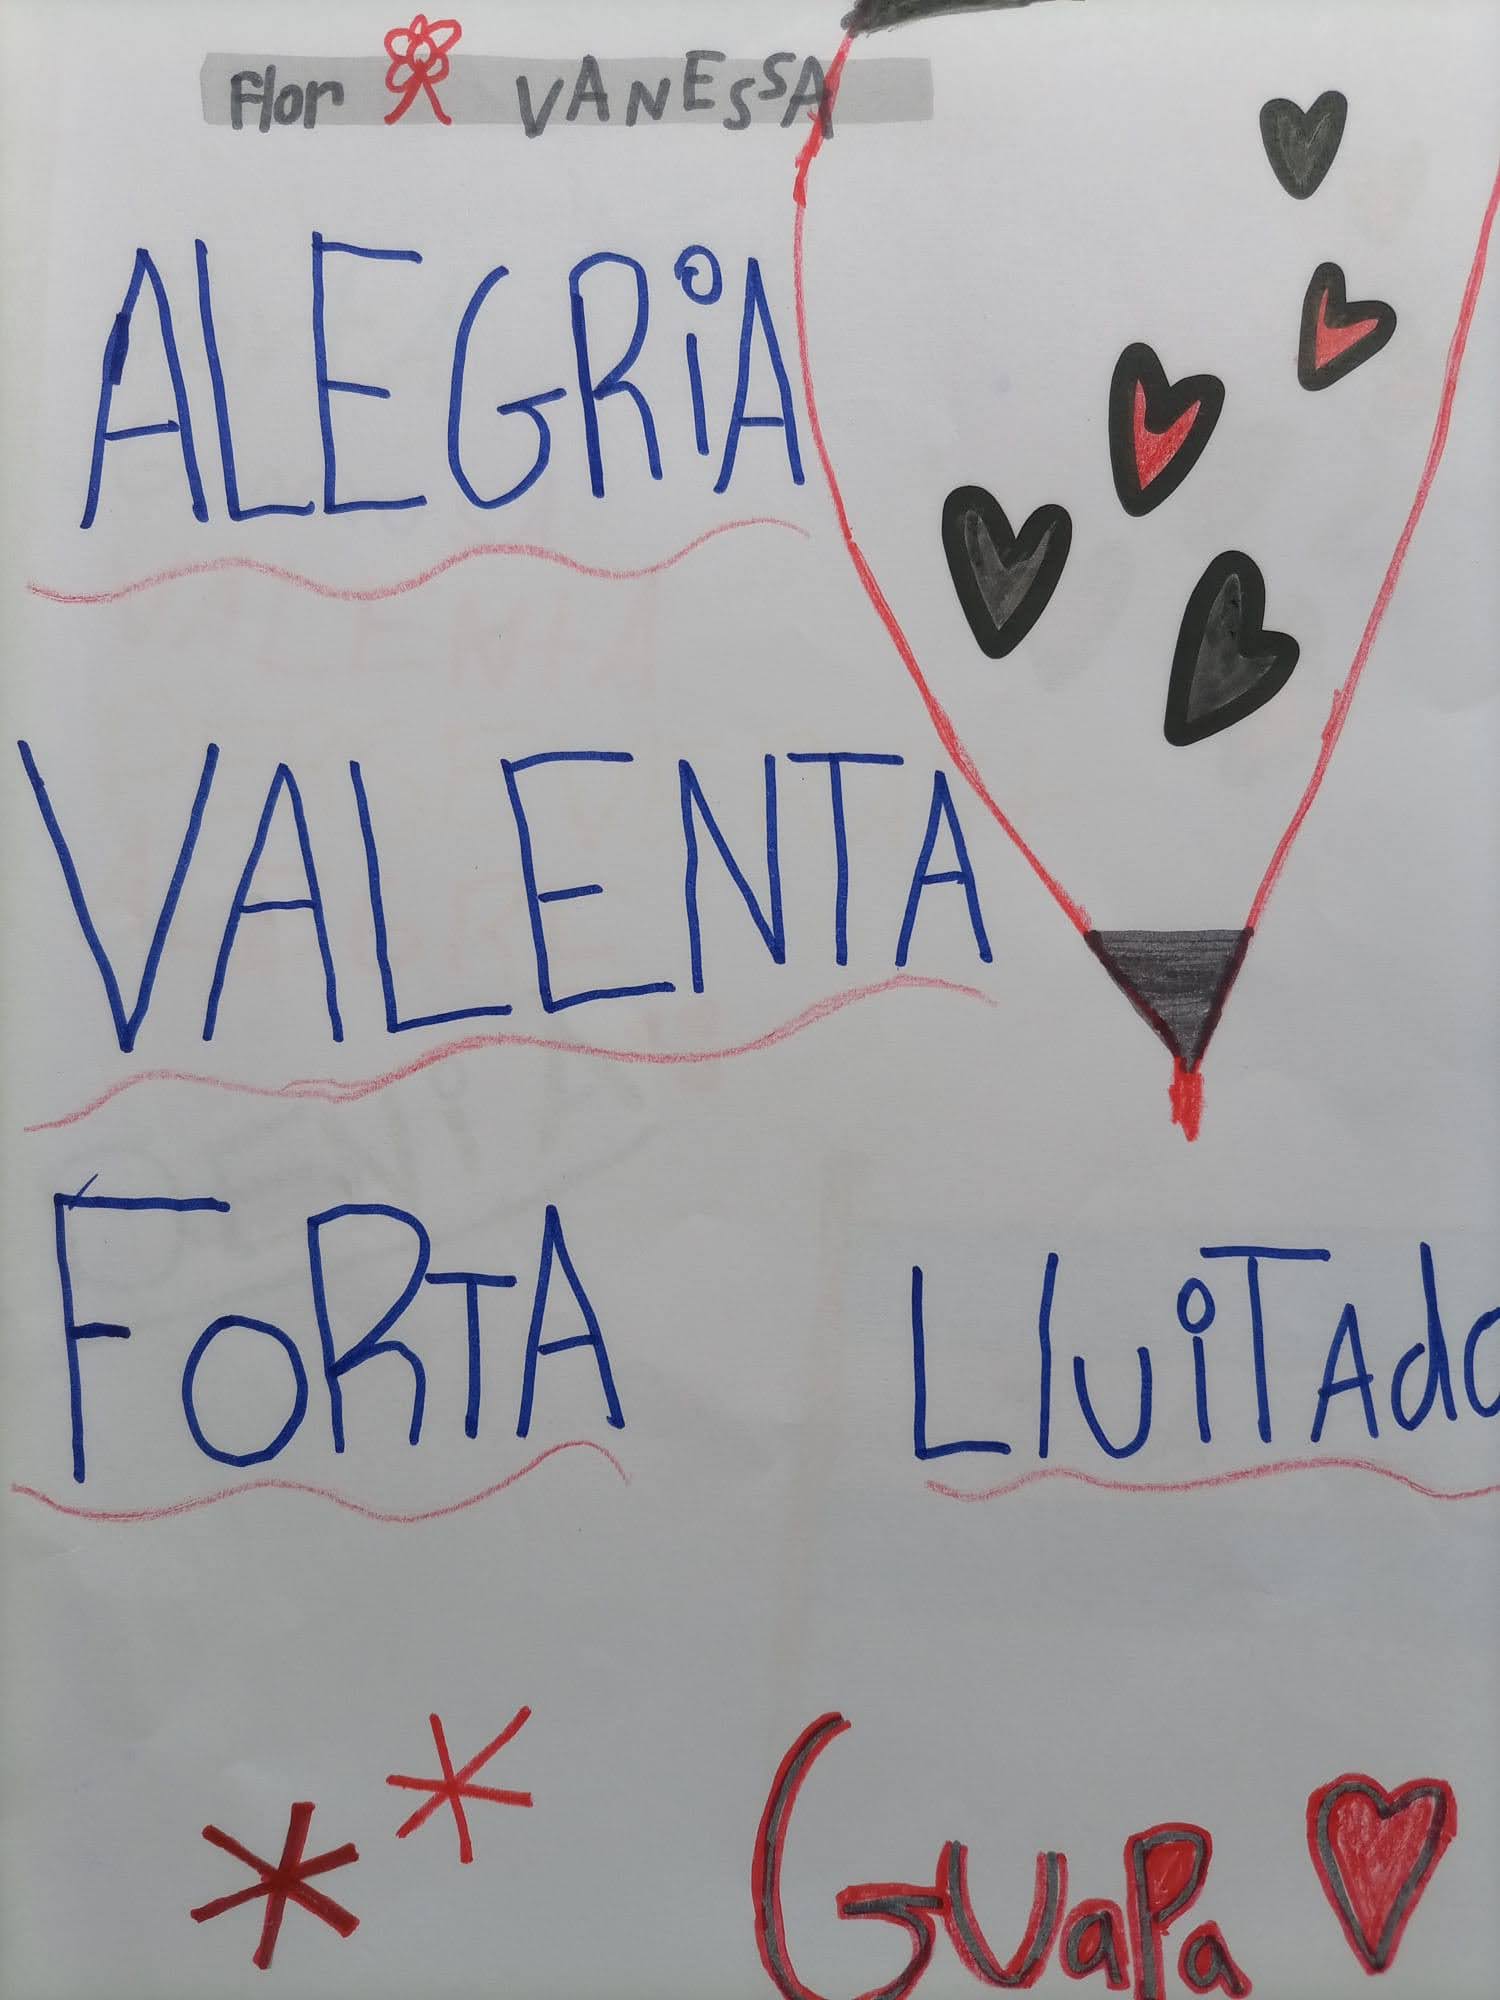 Flor VANESSA
ALEGRiA
VALENTA
FoRTA
LluiTAdo
GuaPa